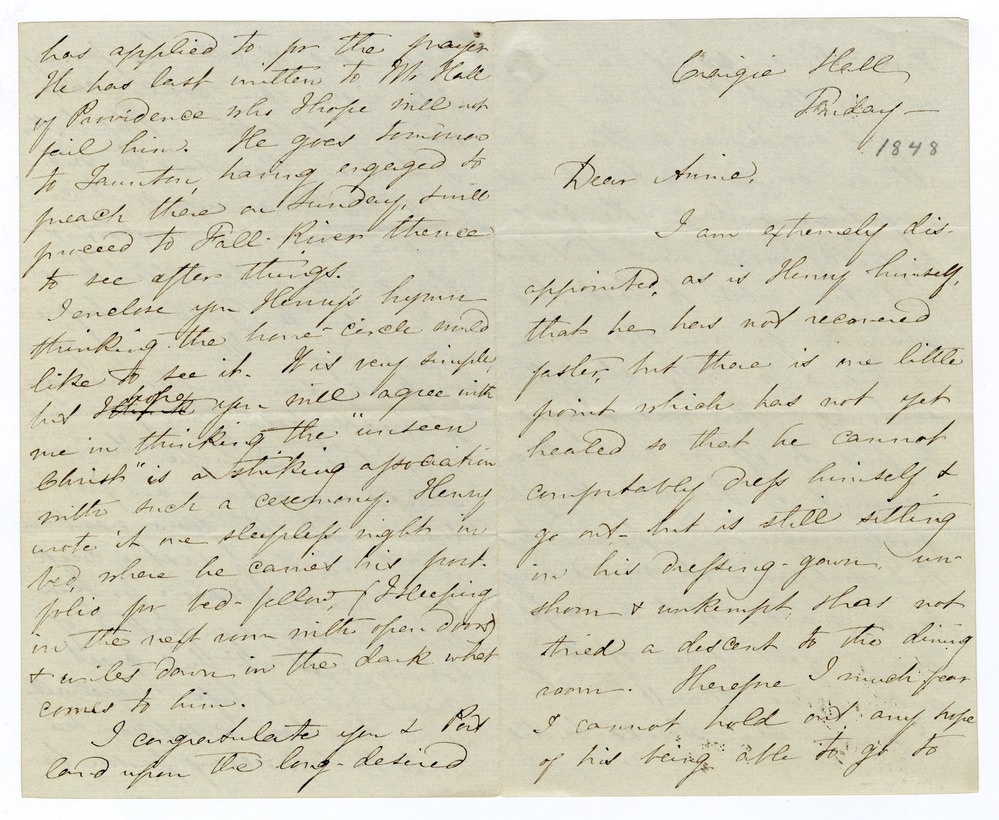 Craigie Hall,
Friday —
1848
Dear Annie,
I am extremely dis-
appointed, as is Henry himself,
that he has not recovered
faster, but there is one little
point which has not yet
healed so that he cannot
comfortably dress himself &
go out - but is still sitting
in his dressing-gown, un-
shorn & unkempt, & has not
tried a descent to the dining
room. Therefore I much fear
I cannot hold out any hope
of his being able to go to
has applied to for the prayer
He has last written to Mr Hall
of Providence who I hope will not
fail him. He goes tomorrow
to Taunton, having engaged to
preach there on Sunday, & will
proceed to Fall-River thence
to see after things.
I enclose you Henry's hymn
thinking the home-circle would
like to see it. It is very simple,
but I hope you will agree with
me in thinking the "unseen
Christ" is a striking association
with such a ceremony. Henry
wrote it one sleepless night in
bed, where he carries his port-
folio for bed-fellow, (I sleeping
in the next room with open doors)
& writes down in the dark what
comes to him.
I congratulate you & Port
land upon the long-desired